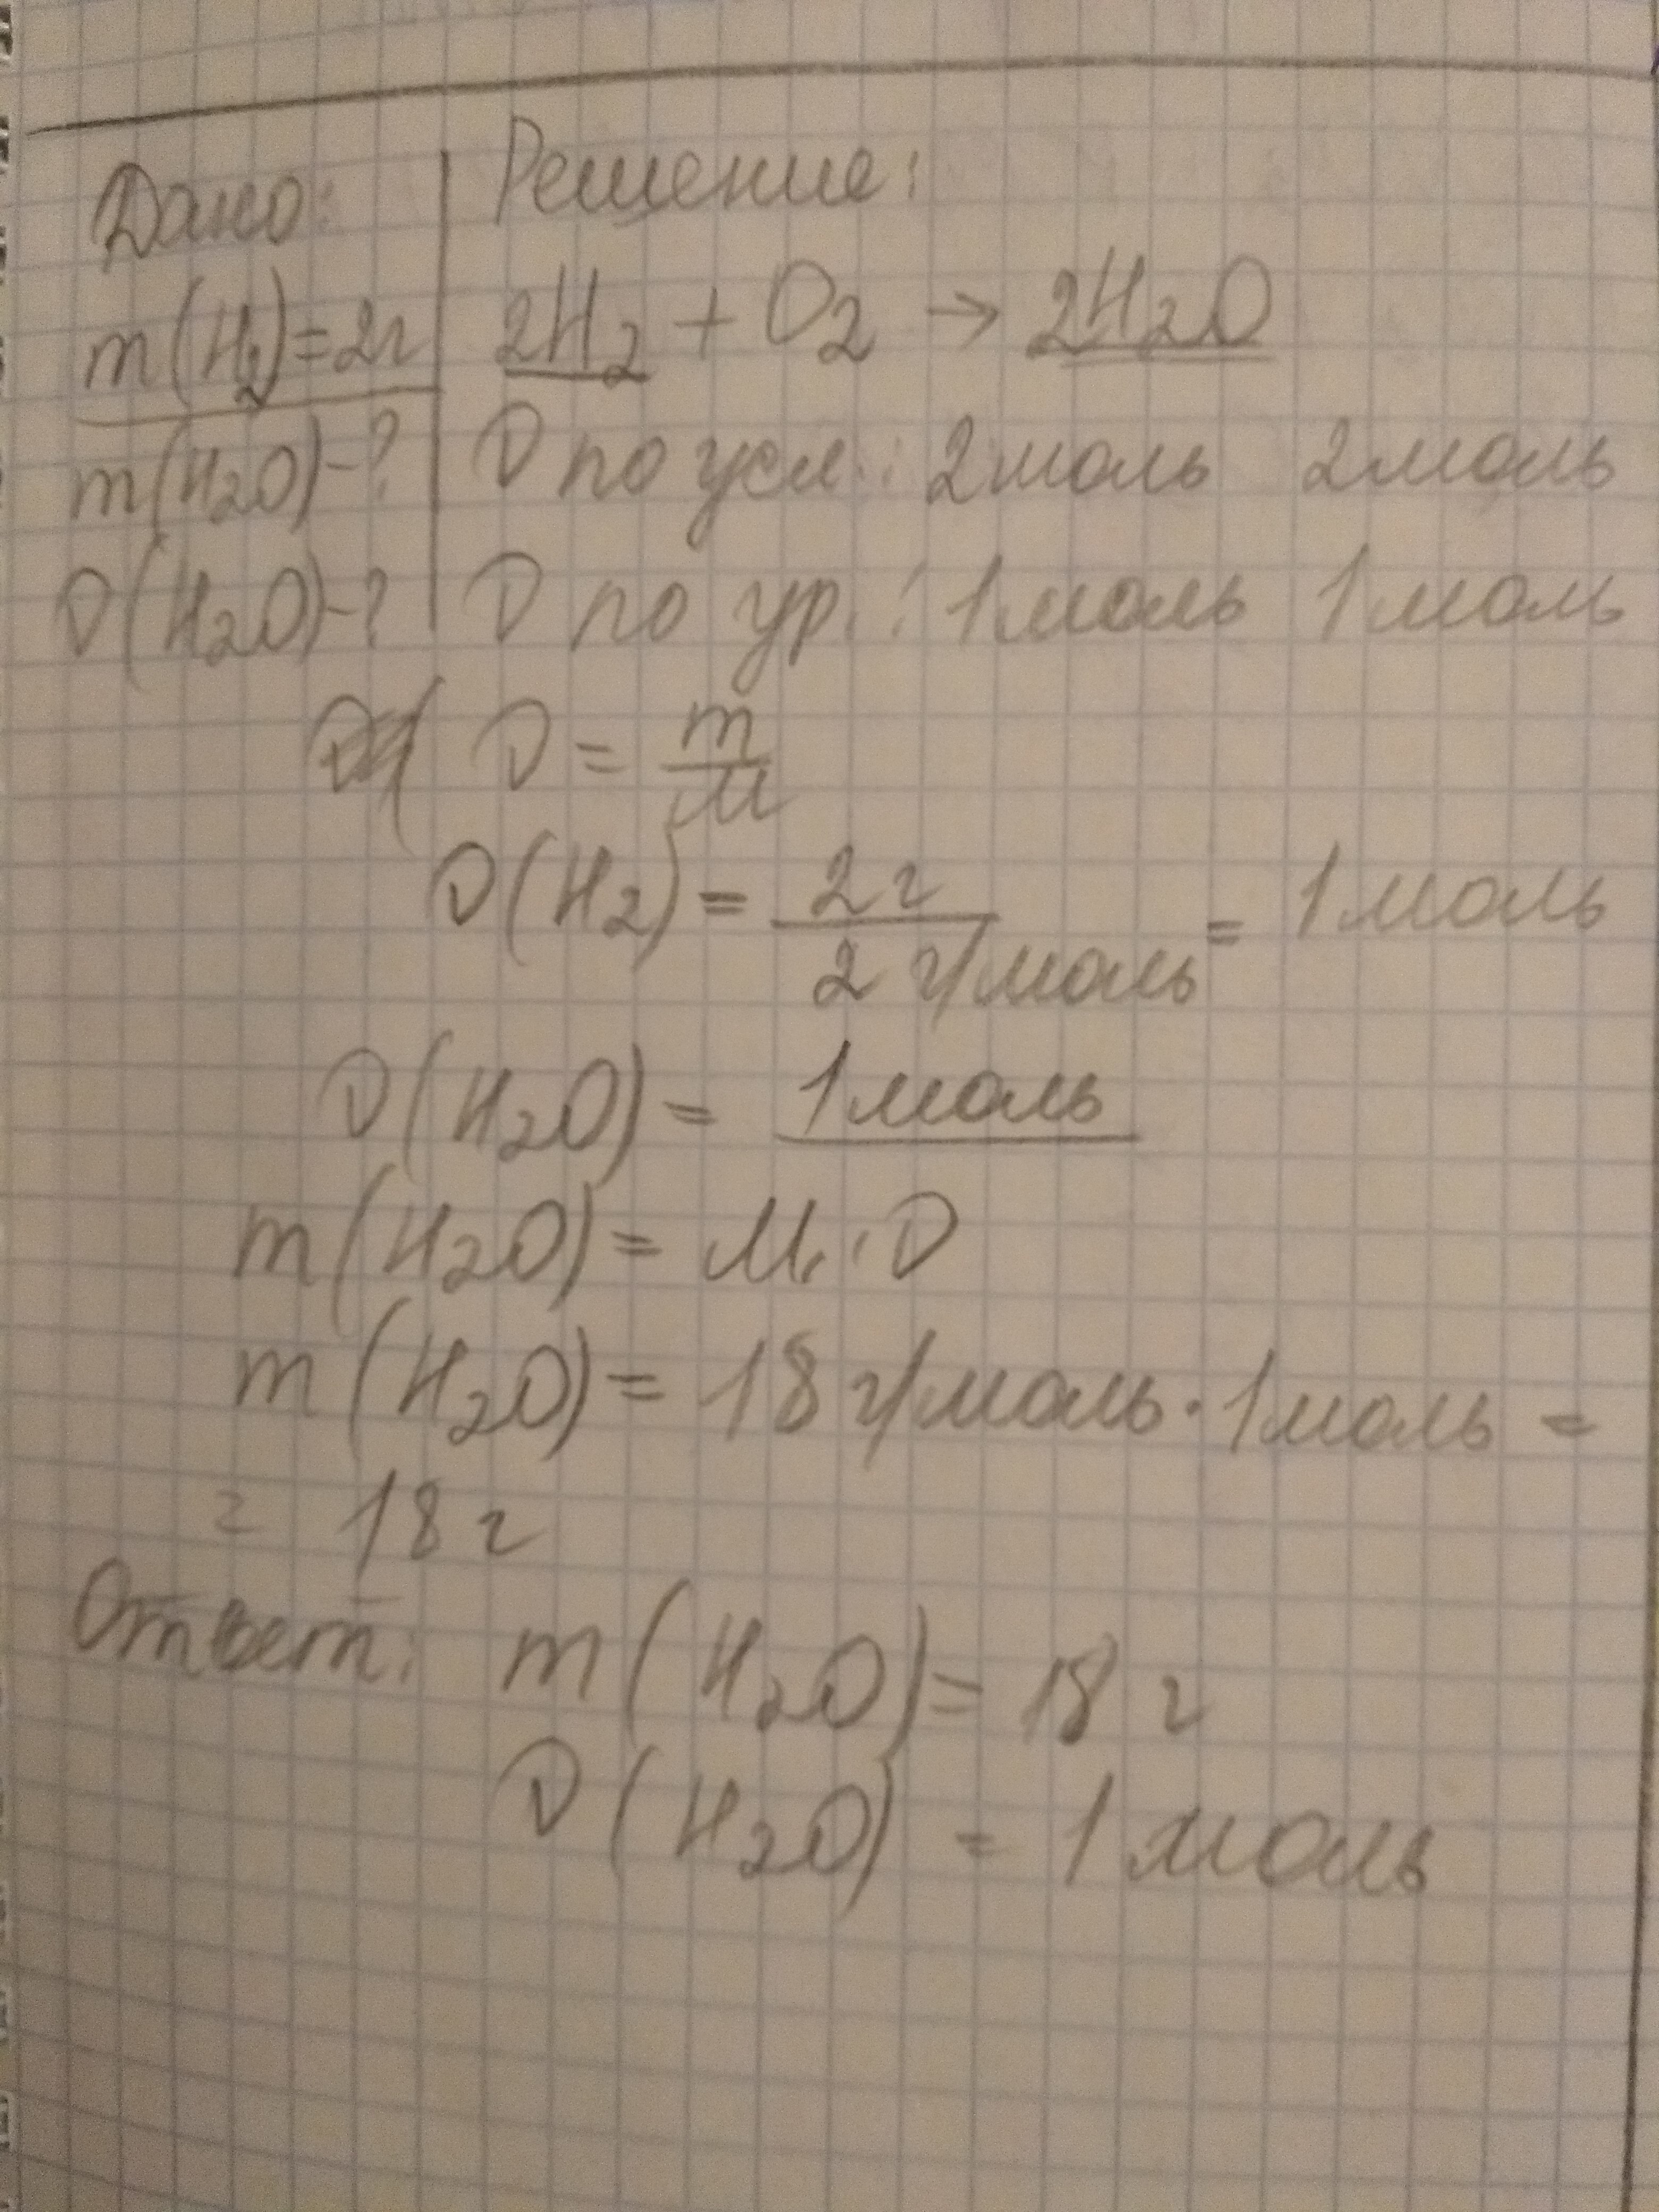 Дано:
Решение:
m(H₂)=2г
2H₂ + O₂ → 2H₂O
m(H₂O)-?
ν по усл.: 2моль 2моль
ν(H₂O)-?
ν по ур.: 1моль 1моль
ν = m/M
ν(H₂) = 2г/2 г/моль = 1моль
ν(H₂O) = 1моль
m(H₂O) = M · ν
m(H₂O) = 18 г/моль · 1моль =
= 18 г
Ответ: m(H₂O) = 18 г
ν(H₂O) = 1 моль